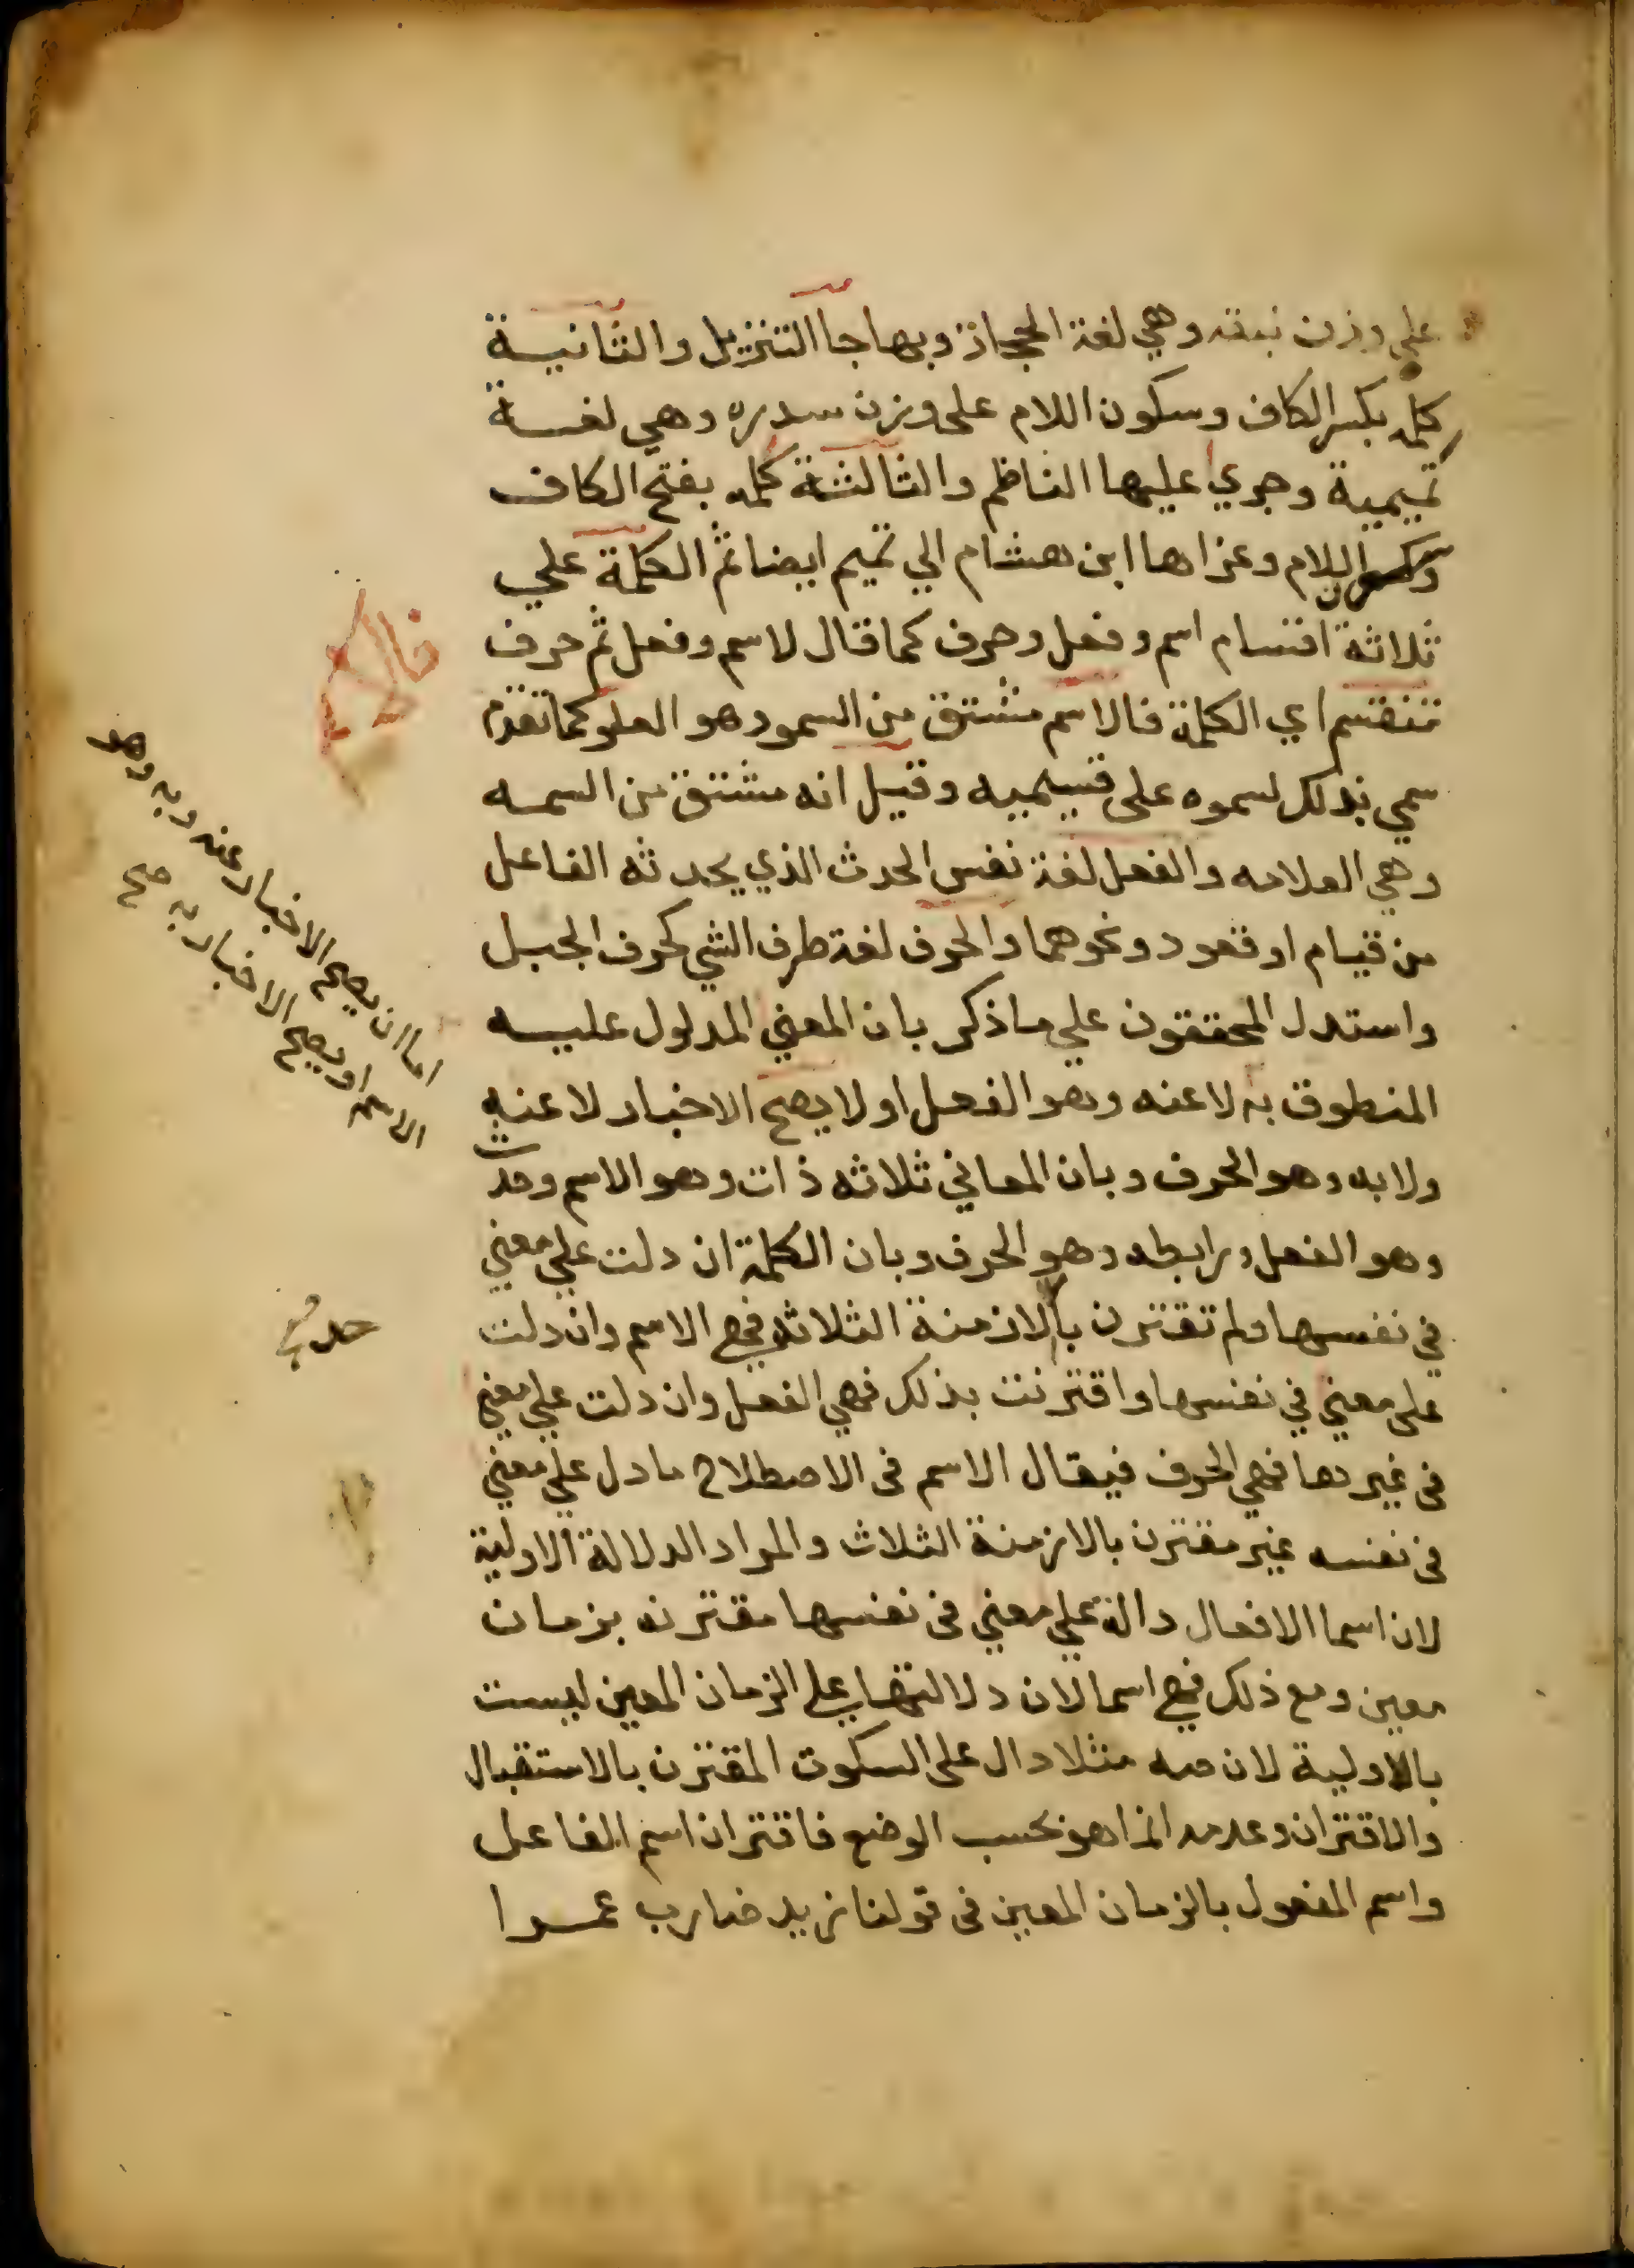 على وزن نبقه وهي لغة الحجاز وبها جا التنزيل والثانيسة
كلمه بكسر الكاف وسكون اللام على وزن سدره وهي لغسة
تميمية وجري عليها الناظم والثالثة كلمه بفتح الكاف
وسكون اللام وعزاها ابن هشام الي تميم ايضا ثم الكلمة علي
ثلاثة اقسام اسم وفعل وحرف كما قال لاسم وفعل ثم حرف
تنقسم اي الكلمة فالاسم مشتق من السمو وهو العلو كما تقدم
سمي بذلك لسموه على قسيميه وقيل انه مشتق من السمه
وهي العلامه والفعل لغة نفس الحدث الذي يحدثه الفاعل
من قيام او قعود ونحوهما والحرف لغة طرف الشي كحرف الجبل
واستدل المحققون علي ما ذكر بان المعني المدلول عليه
المنطوق به لا عنه وهو الفعل او لا يصح الاخبار لا عنه
ولا به وهو الحرف وبان المعاني ثلاثه ذات وهو الاسم وحدث
وهو الفعل ورابطه وهو الحرف وبان الكلمة ان دلت علي معني
في نفسها ولم تقترن بالازمنة الثلاثه فهي الاسم وان دلت
على معني في نفسها واقترنت بذلك فهي الفعل وان دلت علي معني
فى غيرها فهي الحرف فيقال الاسم فى الاصطلاح ما دل علي معني
فى نفسه غير مقترن بالازمنة الثلاث والمراد الدلالة الاولية
لان اسما الافعال دالة علي معني فى نفسها مقترنه بزمان
معين ومع ذلك فهي اسما لان دلالتها على الزمان المعين ليست
بالاولية لان صه مثلا دال على السكوت المقترن بالاستقبال
والاقتران وعدمه انما هو بحسب الوضع فاقتران اسم الفاعل
واسم المفعول بالزمان المعين فى قولنا زيد ضارب عمرا
اما ان يصح الاخبار عنه وبه وهو
الاسم او يصح الاخبار به صح